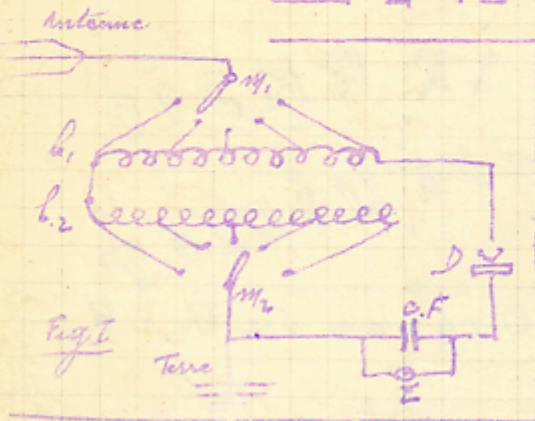 Antenne
m1
b1
b.2
D
m2
C.F
Fig I
Terre
E